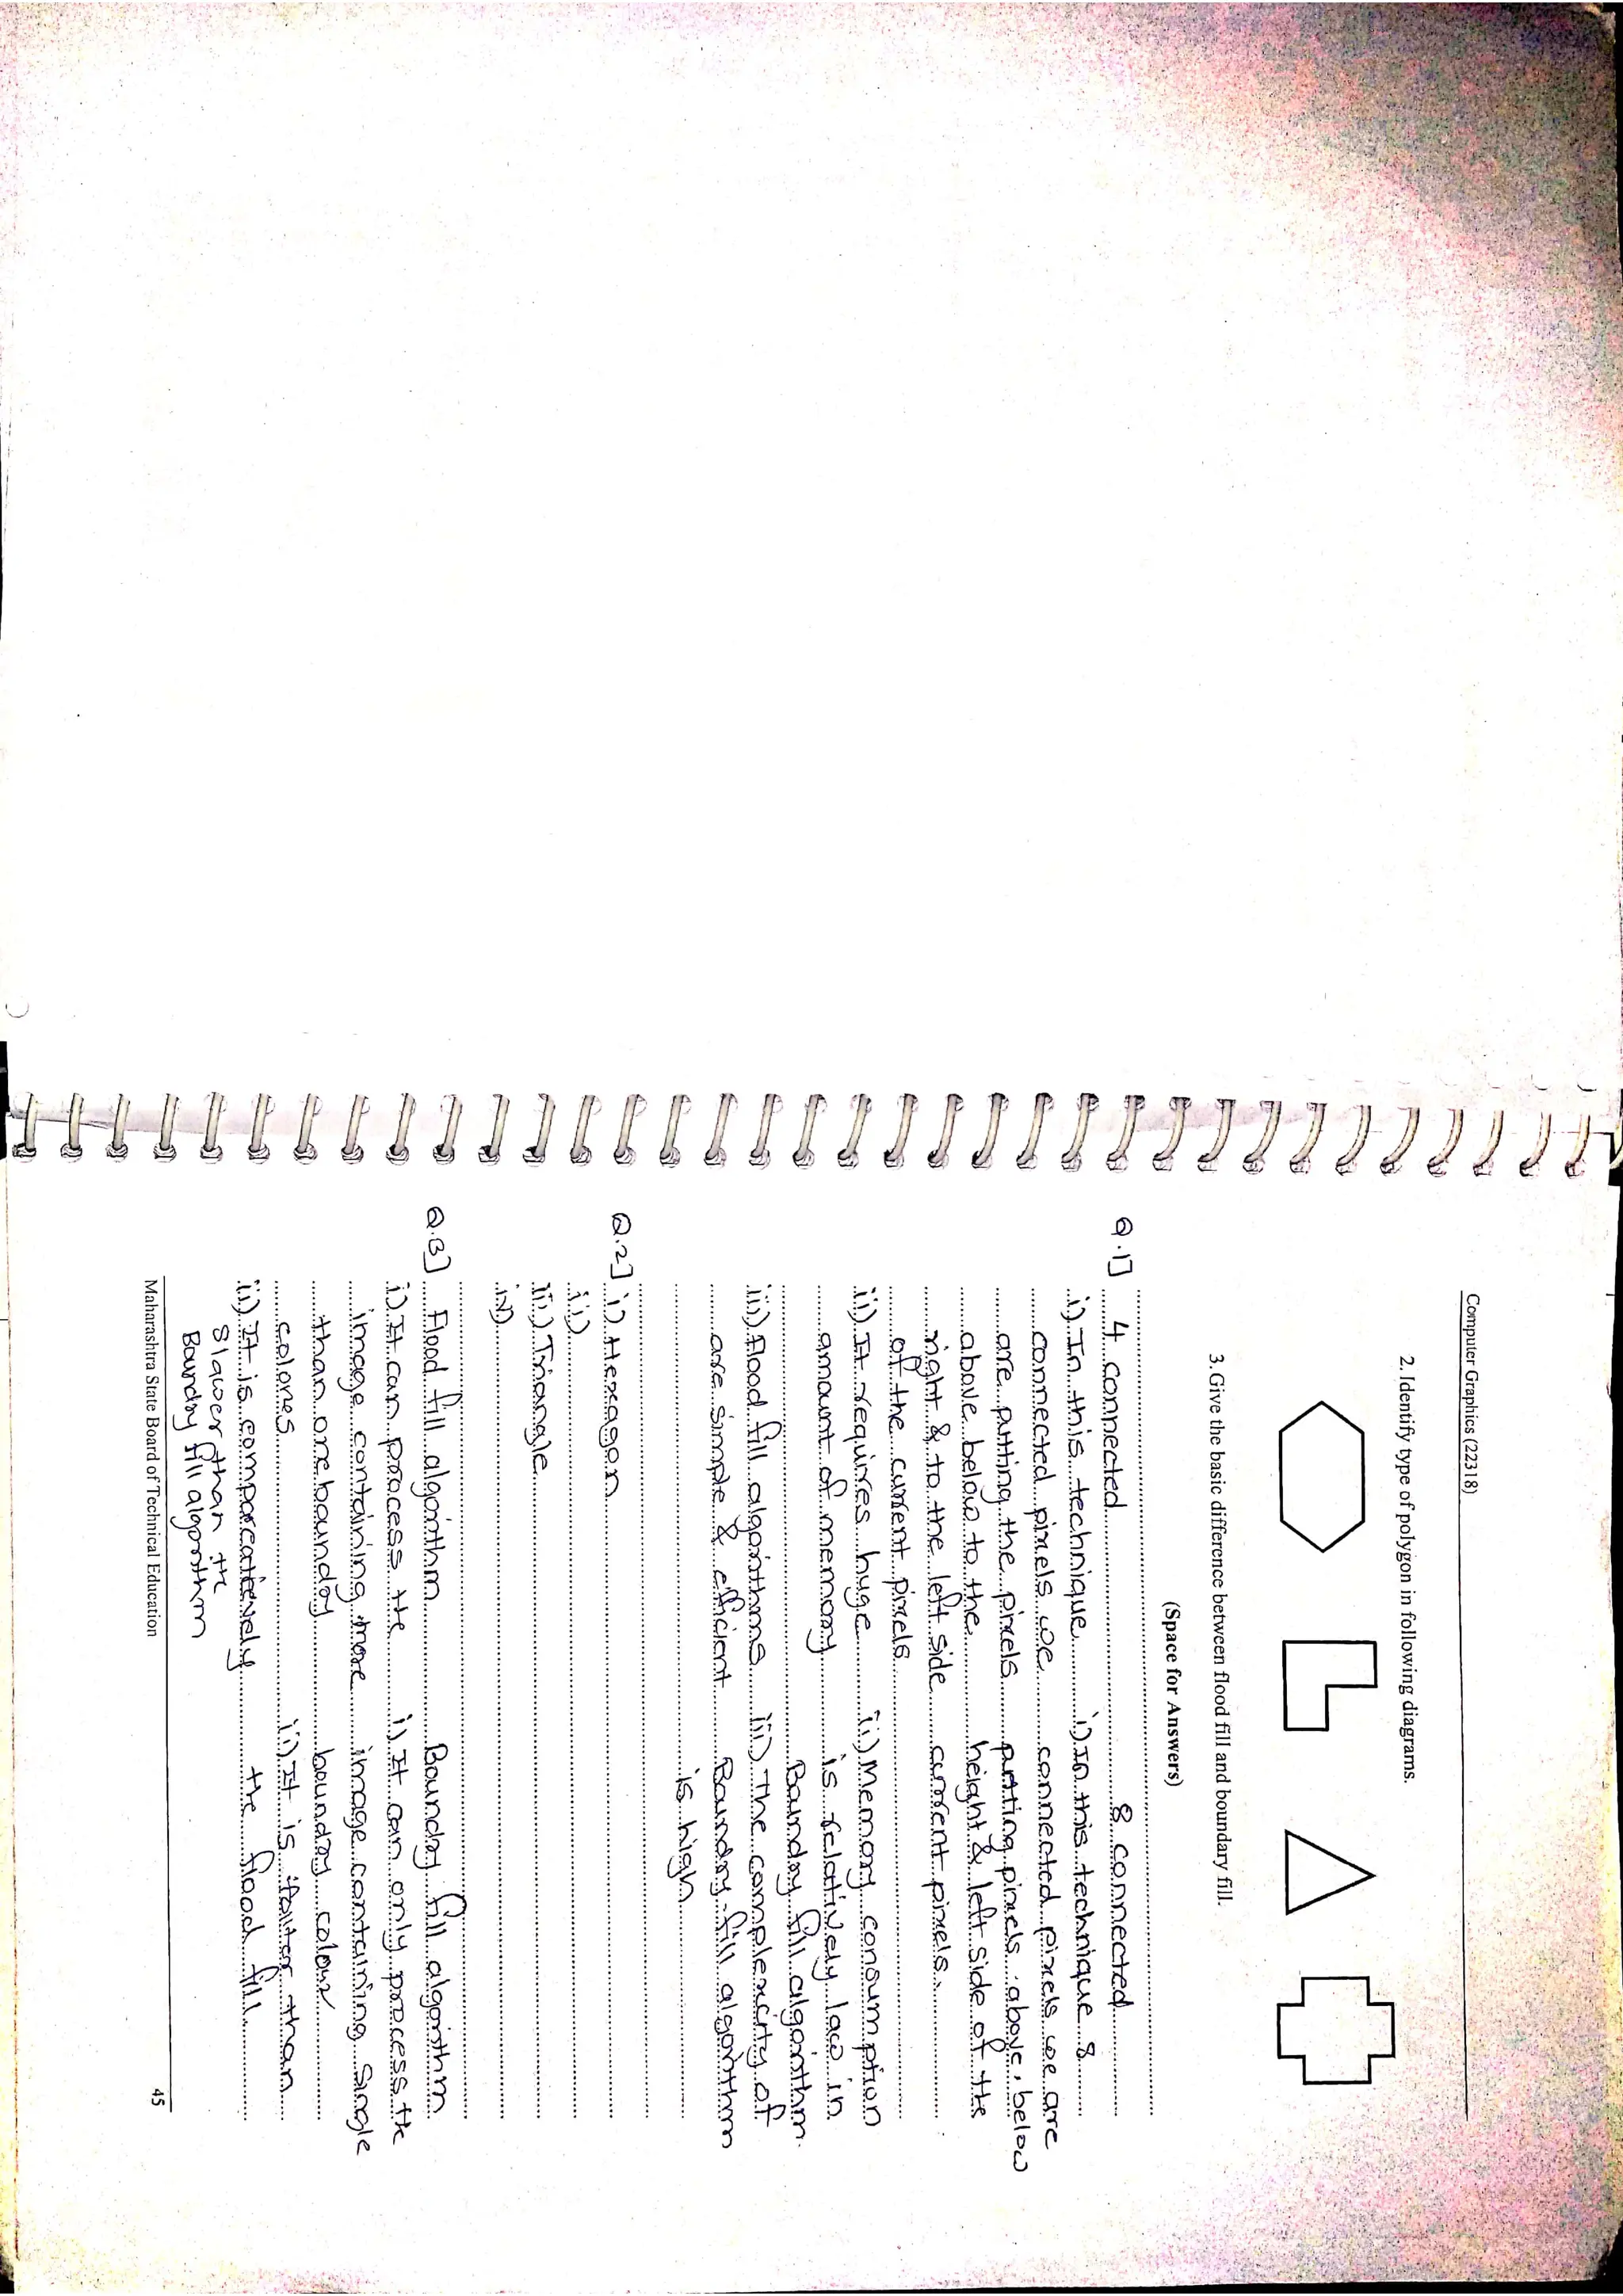 Computer Graphics (22318)
2. Identify type of polygon in following diagrams.
3. Give the basic difference between flood fill and boundary fill.
(Space for Answers)
Q.1] 4 connected 8 connected
i) In this technique i) In this technique 8
connected pixels we connected pixels we are
are putting the pixels putting pixels above, below
above below to the height & left side of the
right & to the left side current pixels.
of the current pixels
ii) It requires huge ii) Memory consumption
amount of memory is relatively low in
Boundry fill algorithm.
iii) Flood fill algorithms iii) The complexcity of
are simple & efficient Boundry-fill algorithm
is high
Q.2] i) Hexagon
ii)
iii) Triangle
iv)
Q.3] Flood fill algorithm Boundry fill algorithm
i) It can process the i) It can only process the
image containing more image containing single
than one boundry boundry colour
colores ii) It is faster than
ii) It is comparcatievely the flood fill.
slower than the
Boundry fill algorithm
Maharashtra State Board of Technical Education 45